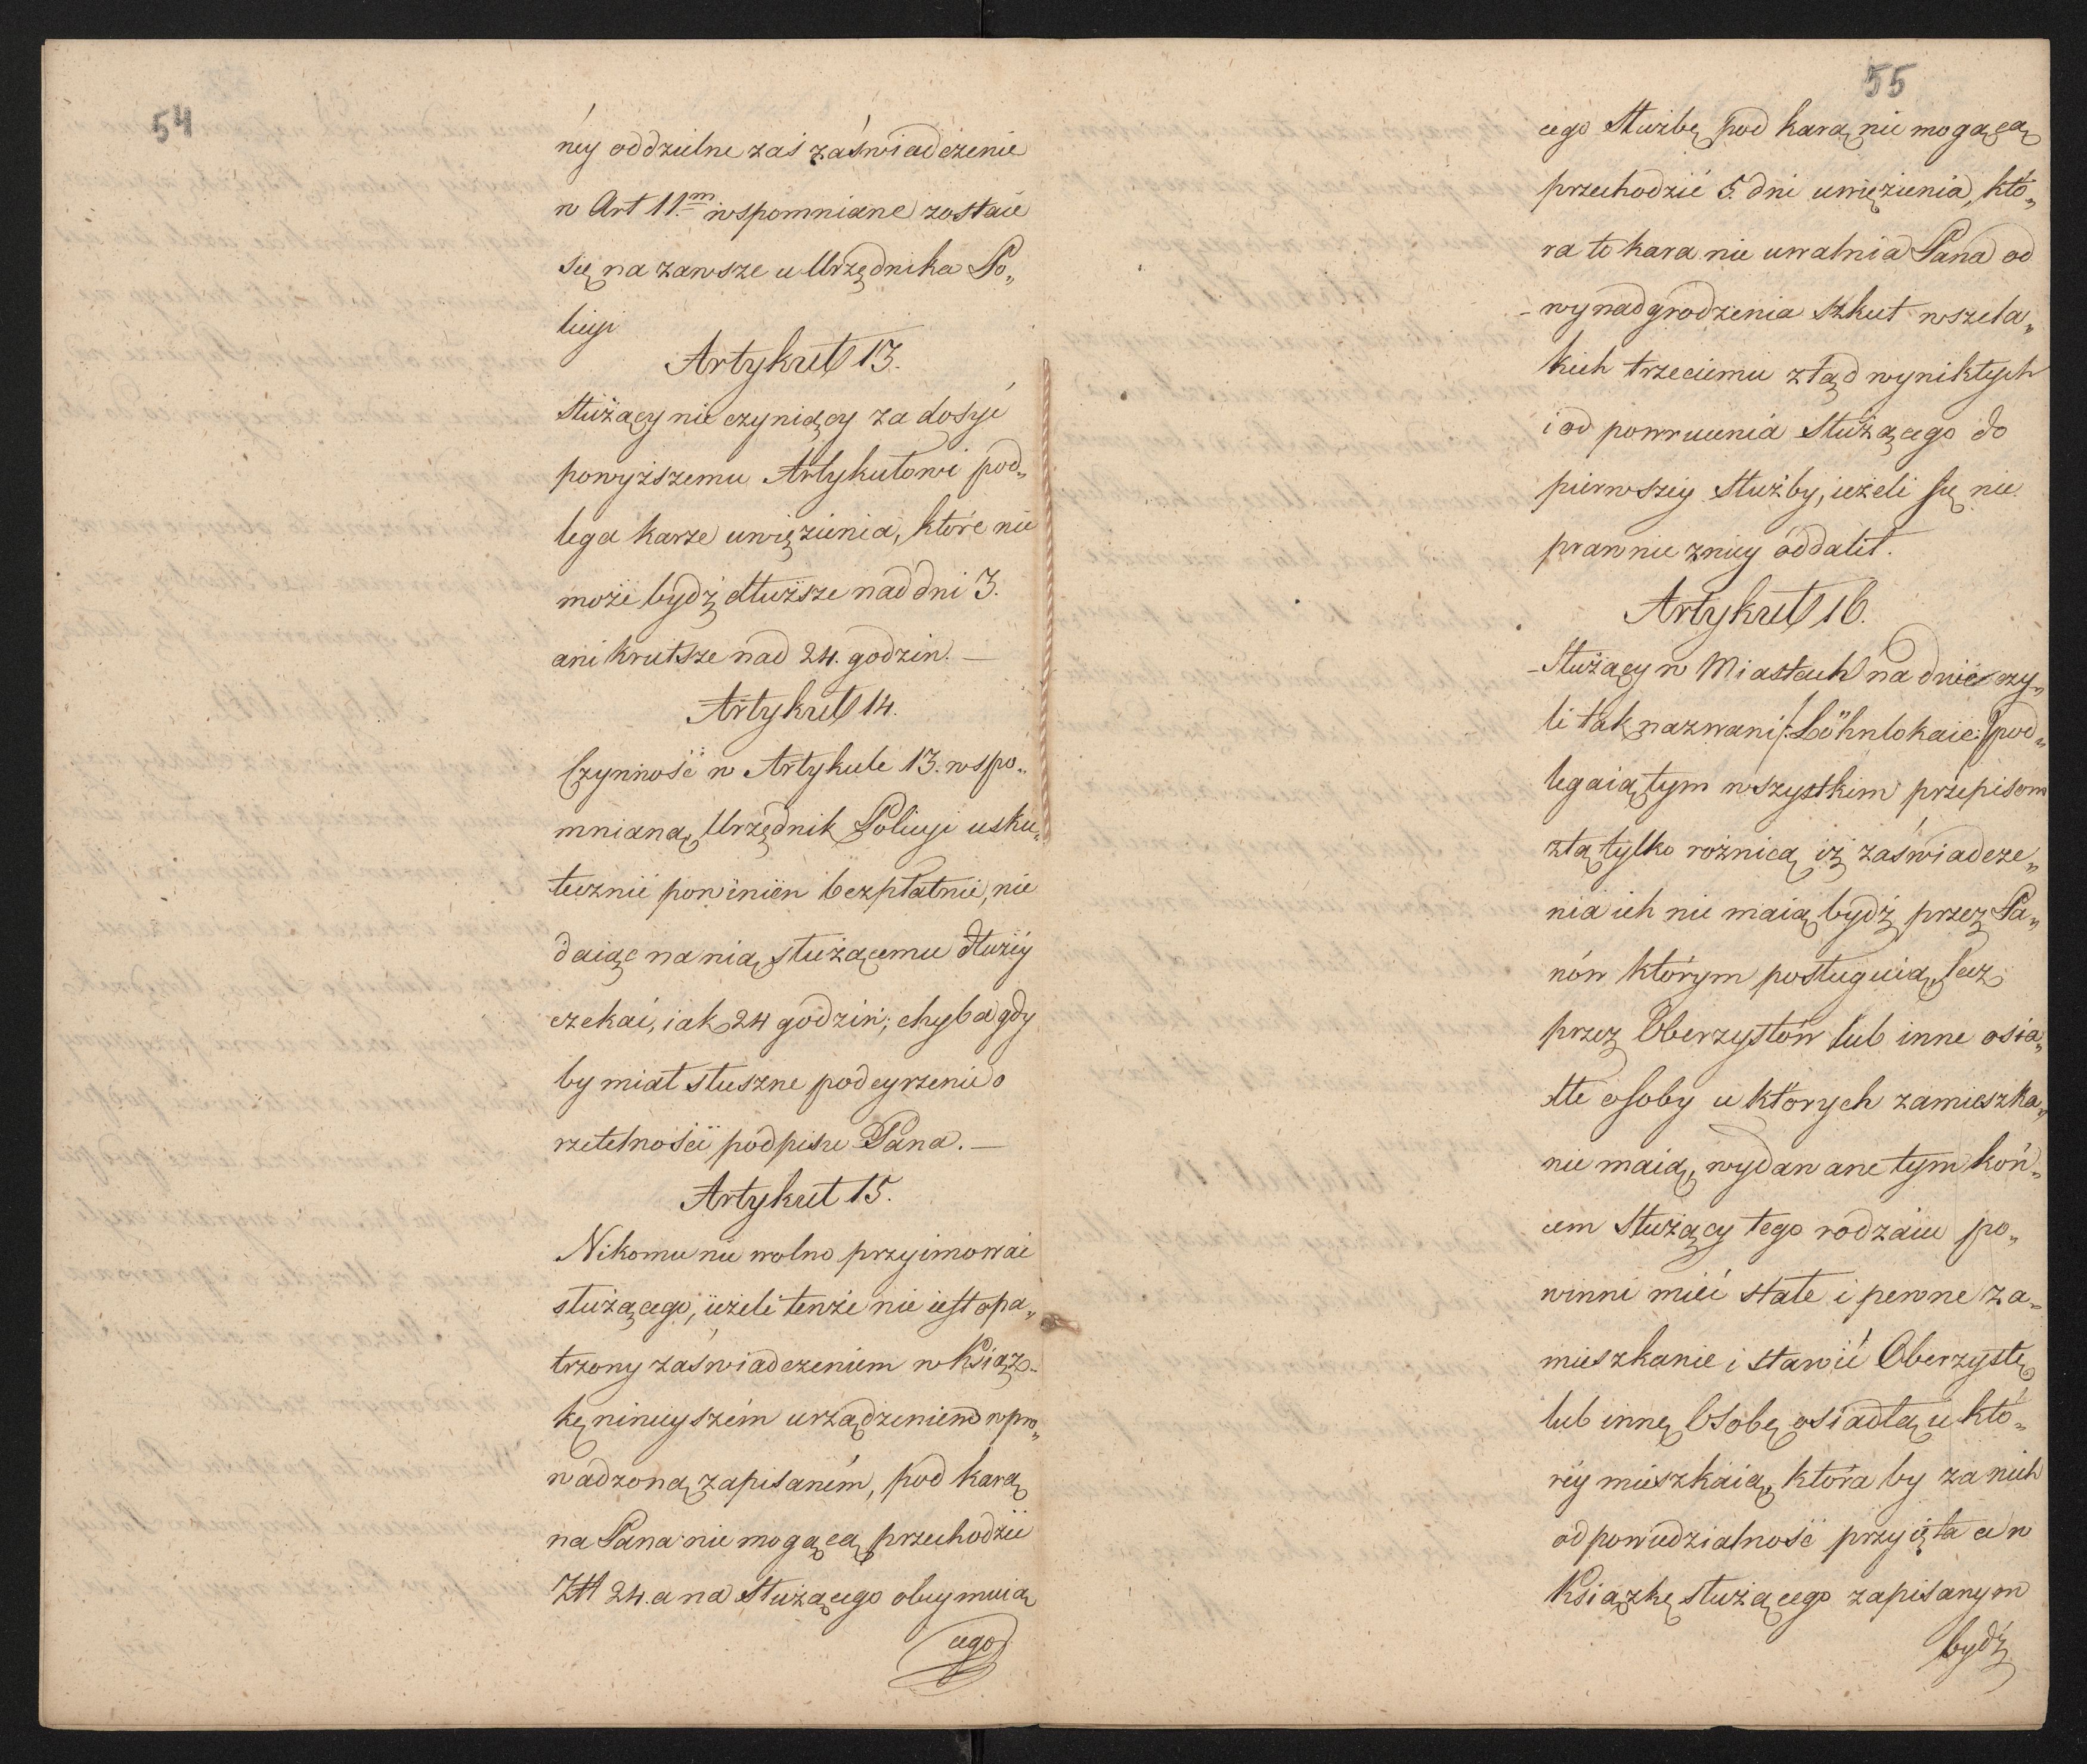 54
ney oddzielne zaś zaświadczenie
w Art 11.m wspomniane zostaie
się na zawsze u Urzędnika Po„
licyi
Artykuł 13.
Służący nie czyniący za dosyć
powyższemu Artykułowi pod„
lega karze uwięzienia, które nie
może bydź dłuższe nad dni 3.
ani krutsze nad 24. godzin. —
Artykuł 14.
Czynność w Artykule 13. wspo„
mnianą, Urzędnik Policyi usku„
tecznić powinien bezpłatnie, nie
daiąc na nią służącemu dłużéy
czekać, iak 24 godzin; chyba gdy
by miał słuszne podeyrzenie o
rzetelności podpisu Pana. —
Artykuł 15.
Nikomu nie wolno przyimować
służącego, ieżeli tenże nie iest opa„
trzony zaświadczeniem w Książ„
kę ninieyszém urządzeniem wpro„
wadzoną zapisaném, pod karą
na Pana nie mogącą przechodzić
Złł 24. a na Służącego obeymuią
cego
55
cego Służbę pod karą nie mogącą
przechodzić 5. dni uwięzienia, któ„
ra to kara nie uwalnia Pana od
wynadgrodzenia szkut wszela„
kich trzeciemu ztąd wynikłych
i od powrucenia Służącego do
pierwszey Służby, ieżeli się nie
prawnie zniey oddalił.
Artykuł 16.
Służący w Miastach na dnie czy„
li tak nazwani /:Löhnlokaie:/ pod„
legaią tym wszystkim przepisom
ztą tylko rożnicą iż zaświadcze„
nia ich nie maią bydź przez Pa„
nów którym posługuią, lecz
przez Oberzystów lub inne osia„
dłe osoby u których zamieszka„
nie maią, wydawane tym koń„
cem Służący tego rodzaiu po„
winni mieć stałe i pewne za„
mieszkanie i stawić Oberzystę
lub innę Osobę osiadłą u któ„
réy mieszkaią, która by za nich
odpowiedzialność przyięła a w
Książkę służącego zapisanym
bydź